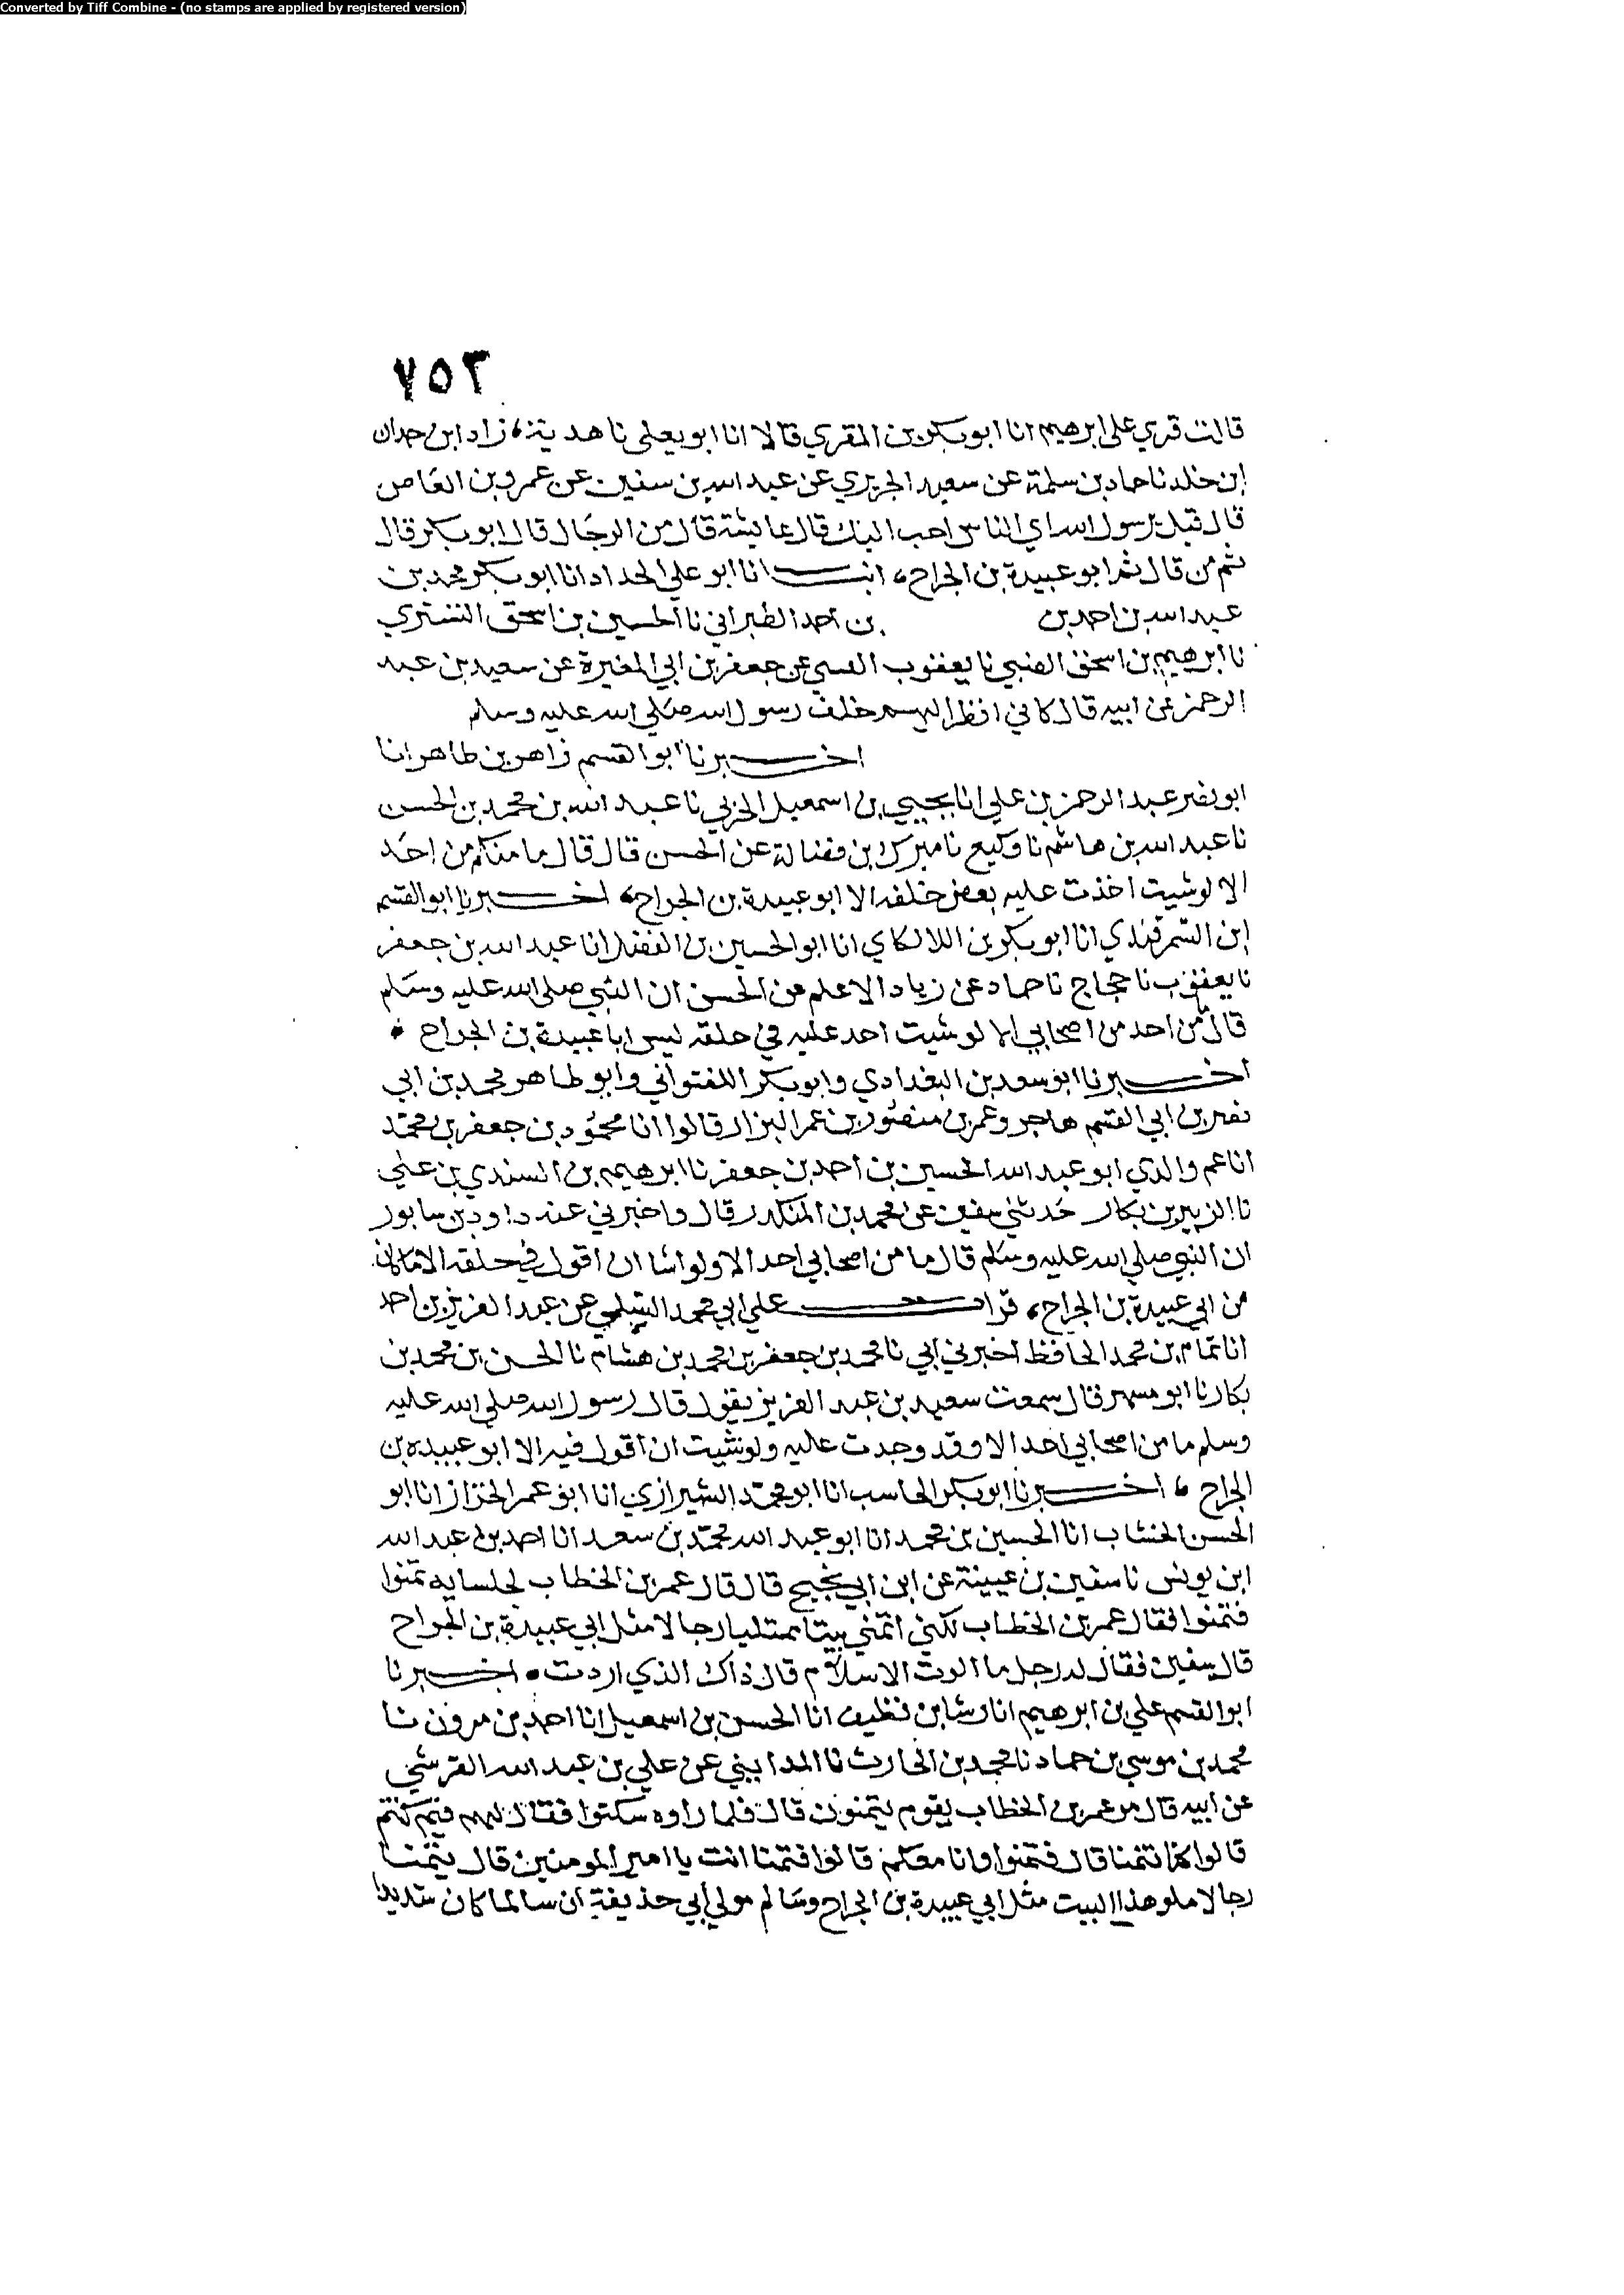 Converted by Tiff Combine - (no stamps are applied by registered version)
٧٥٣
قالت قري على ابرهيم انا ابو بكر بن المقري قالا انا ابو يعلى نا هدبة، زاد ابن حمدان
ابن خلد نا حماد بن سلمة عن سعيد الجريري عن عبد الله بن سفين عن عمرو بن العاص
قال قيل يرسول الله اي الناس احب اليك قال عايشة قال من الرجال قال ابو بكر قال
ثم من قال ثم ابو عبيدة بن الجراح، انبــانا ابو علي الحداد انا ابو بكر محمد بن
عبد الله بن احمد بن بن احمد الطبراني نا الحسين بن اسحق التستري
نا ابرهيم بن اسحق الضبي نا يعقوب القمي عن جعفر بن ابي المغيرة عن سعيد بن عبد
الرحمن عن ابيه قال كاني انظر اليهم خلف رسول الله صلى الله عليه وسلم
اخــبرنا ابو القسم زاهر بن طاهر انا
ابو نصر عبد الرحمن بن علي انا يحيى بن اسمعيل الحربي نا عبد الله بن محمد بن الحسن
نا عبد الله بن هاشم نا وكيع نا مبرك بن فضالة عن الحسن قال قال ما منكم من احد
الا لو شيت اخذت عليه بعض خلقه الا ابو عبيدة بن الجراح، اخــبرنا ابو القسم
ابن السمرقندي انا ابو بكر بن اللالكاي انا ابو الحسين بن الفضل انا عبد الله بن جعفر
نا يعقوب نا حجاج نا حماد عن زياد الاعلم عن الحسن ان النبي صلى الله عليه وسلم
قال من احد من اصحابي الا لو شيت احد عليه في خلقه ليس ابا عبيدة بن الجراح
اخــبرنا ابو سعد بن البغدادي وابو بكر اللفتواني وابو طاهر محمد بن ابي
نصر بن ابي القسم هاجر وعمر بن منصور بن عمر البزار قالوا انا محمود بن جعفر بن محمد
انا عم والدي ابو عبد الله الحسين بن احمد بن جعفر نا ابرهيم بن السندي بن علي
نا الزبير بن بكار حدثني سفين عن محمد بن المنكدر قال واخبرني عنه داود بن سابور
ان النبي صلى الله عليه وسلم قال ما من اصحابي احد الا ولو اشا ان اقول في خلقه الا ما كان
من ابي عبيدة بن الجراح، قرات على ابي محمد السلمي عن عبد العزيز بن احمد
انا تمام بن محمد الحافظ اخبرني ابي نا محمد بن جعفر بن محمد بن هشام نا الحسن بن محمد بن
بكار نا ابو مسهر قال سمعت سعيد بن عبد العزيز يقول قال رسول الله صلى الله عليه
وسلم ما من اصحابي احد الا وقد وجدت عليه ولو شيت ان اقول فيه الا ابو عبيدة بن
الجراح، اخــبرنا ابو بكر الحاسب انا ابو محمد الشيرازي انا ابو عمر الخزاز انا ابو
الحسن الخشاب انا الحسين بن محمد انا ابو عبد الله محمد بن سعد انا احمد بن عبد الله
ابن يونس نا سفين بن عيينة عن ابن ابي نجيح قال قال عمر بن الخطاب لجلسايه تمنوا
فتمنوا فقال عمر بن الخطاب لكني اتمني بيتا ممتليا رجالا مثل ابي عبيدة بن الجراح
قال سفين فقال له رجل ما الوت الاسلام قال ذاك الذي اردت، اخــبرنا
ابو القسم علي بن ابرهيم انا رشا بن نظيف انا الحسن بن اسمعيل انا احمد بن مرون نا
محمد بن موسى بن حماد نا محمد بن الحارث نا المدايني عن علي بن عبد الله القرشي
عن ابيه قال مر عمر بن الخطاب بقوم يتمنون قال فلما راوه سكتوا فقال لهم فيم كنتم
قالوا كنا نتمنا قال فتمنوا وانا معكم قالوا فتمنا انت يا امير المومنين قال يتمنا
رجالا ملو هذا البيت مثل ابي عبيدة بن الجراح وسالم مولى ابي حذيفة ان سالما كان شديدا